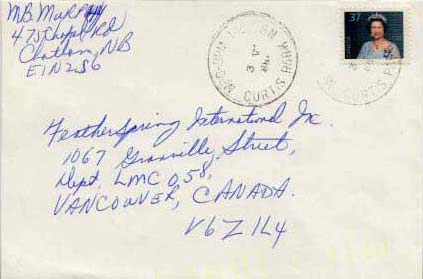 M.B. Murphy
475 Chapel Rd
Chatham, NB
E1N 2S6
37
CURTIS PARK
CURTIS PARK
FeatherSpring International Inc.
1067 Granville Street,
Dept. LMC 058,
VANCOUVER, CANADA.
V6Z 1L4